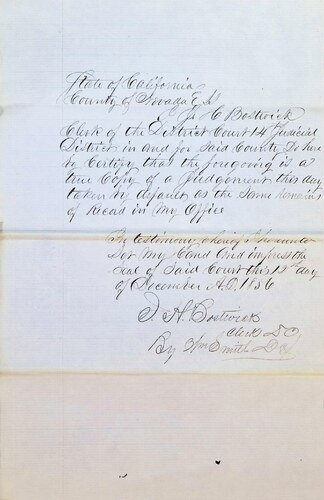 State of California
County of Nevada
J. H. Bostwick
Clerk of the District Court 14th Judicial
District in and for Said County Do here
by Certify that the foregoing is a
true Copy of a Judgement this day
taken by default as the Same remains
of Record in My Office
In testimony whereof I hereunto
Set My Hand And impress the
Seal of Said Court this 12th day
of December A.D. 1856
J. H. Bostwick
Clerk D C
By Wm Smith D